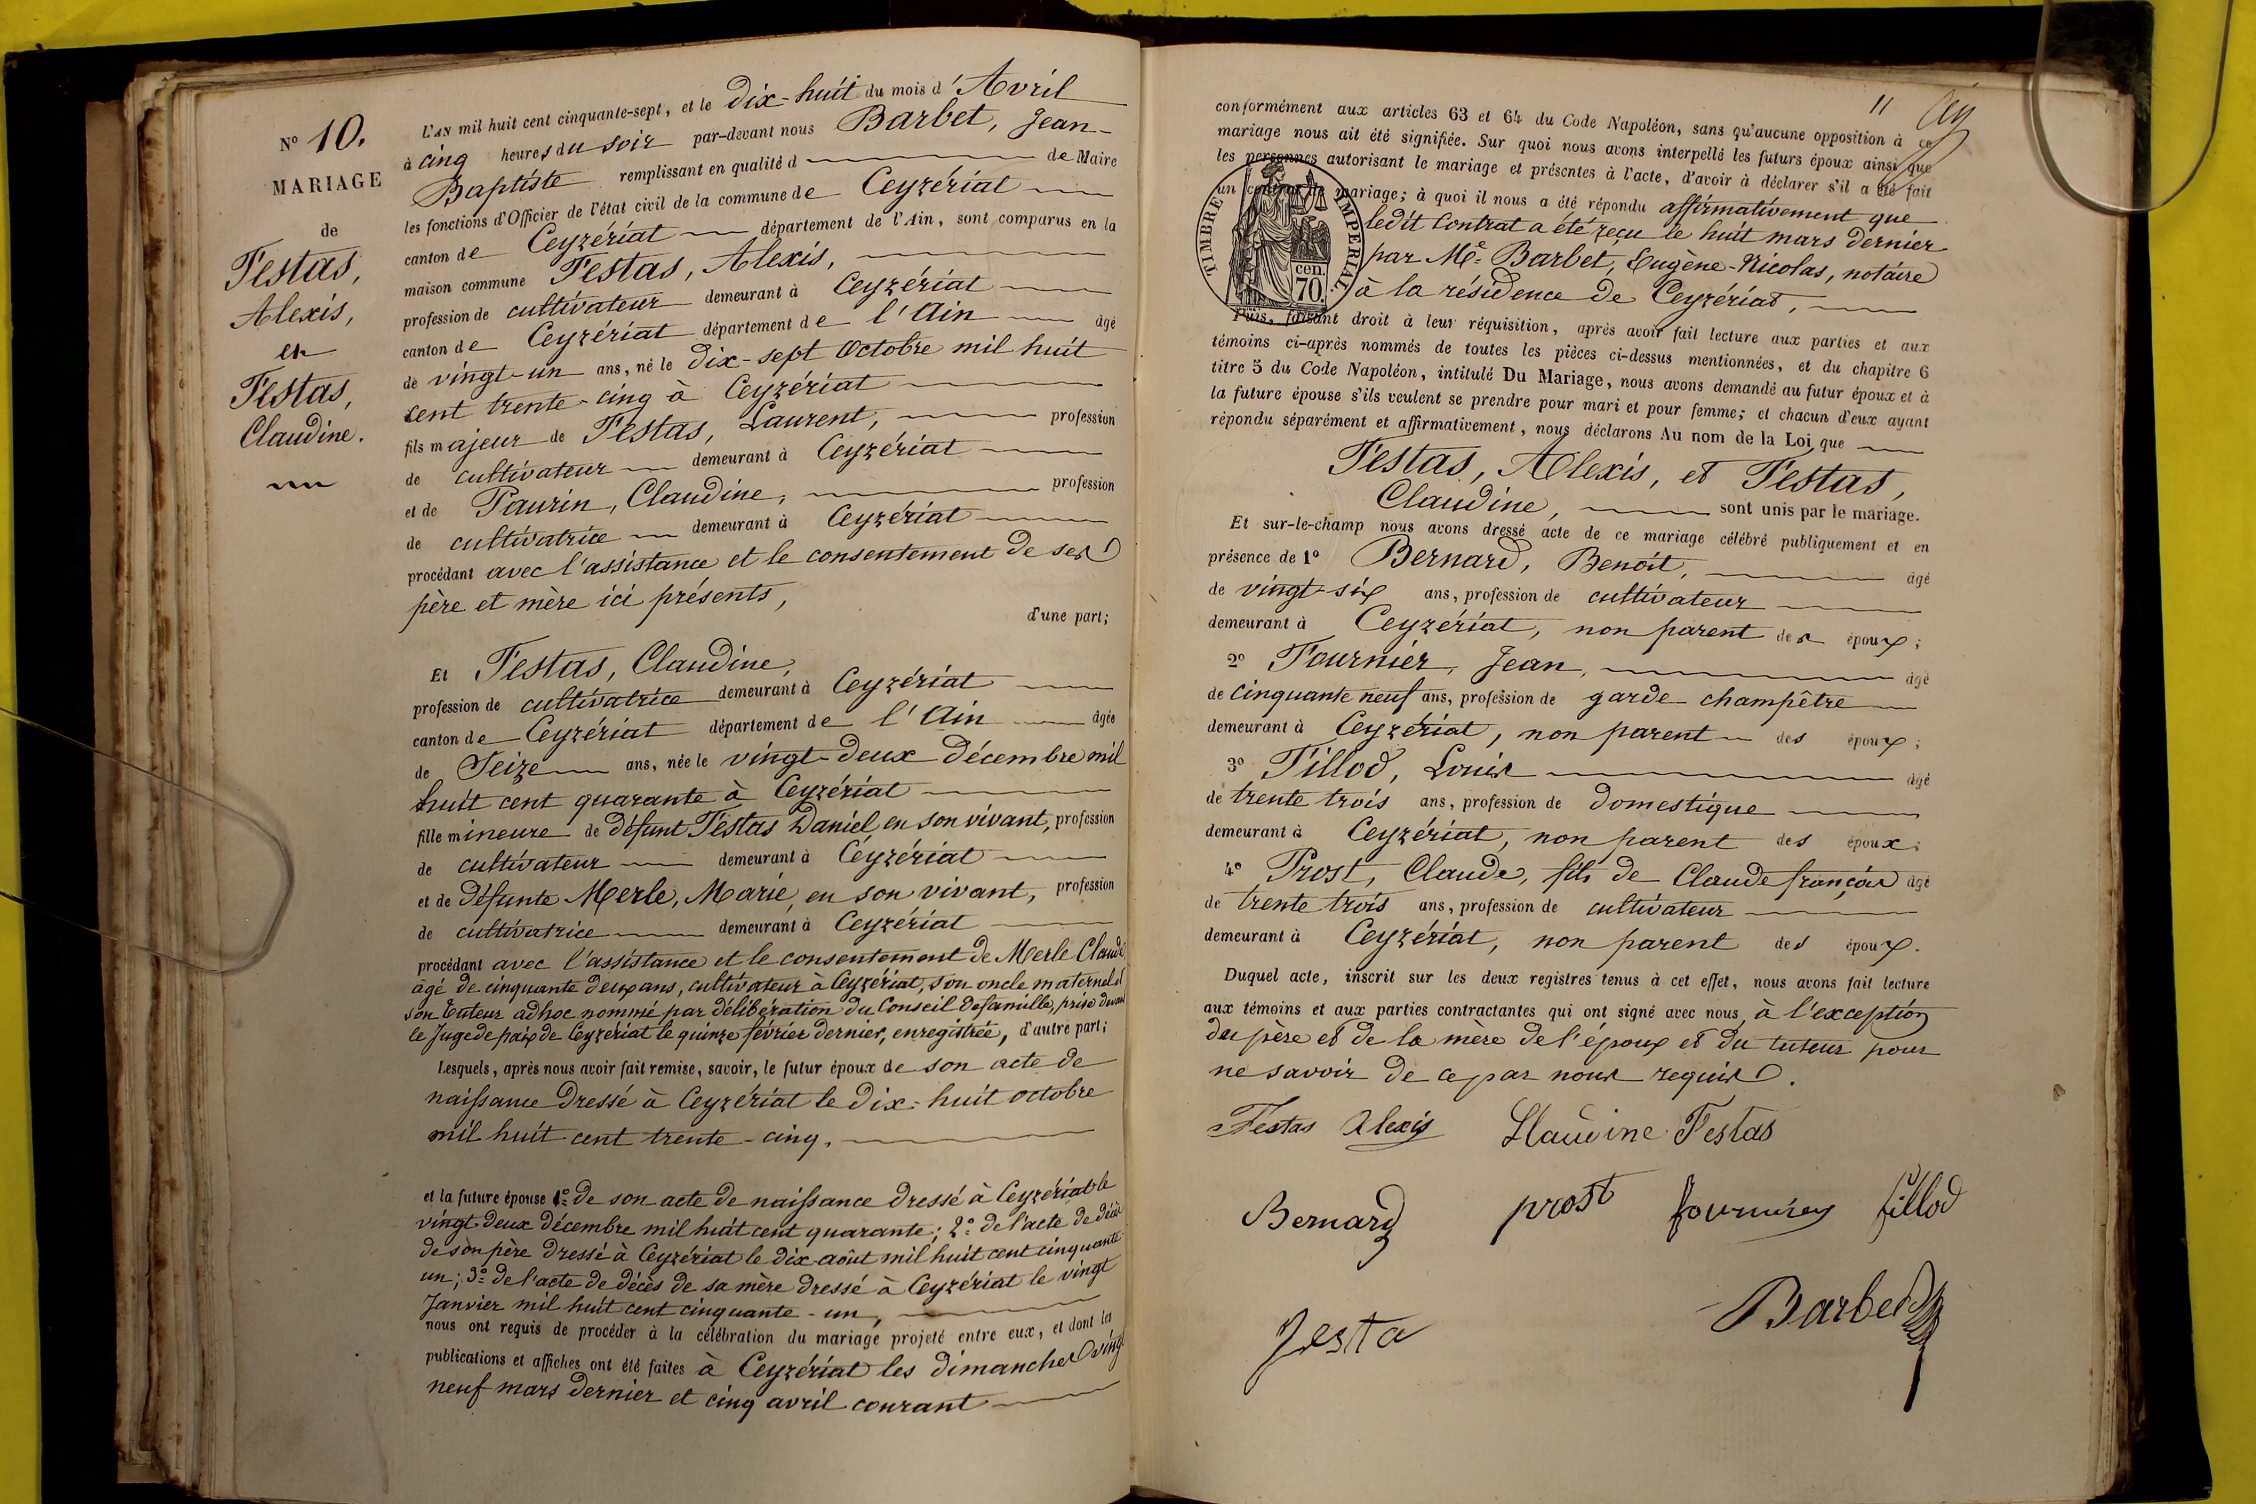 N° 10.
MARIAGE
de
Festas,
Alexis,
et
Festas,
Claudine.
L'AN mil huit cent cinquante-sept, et le dix-huit du mois d'Avril
à cinq heures du soir par-devant nous Barbet, Jean-
Baptiste remplissant en qualité d de Maire
les fonctions d'Officier de l'état civil de la commune de Ceyzériat
canton de Ceyzériat département de l'Ain, sont comparus en la
maison commune Festas, Alexis,
profession de cultivateur demeurant à Ceyzériat
canton de Ceyzériat département de l'Ain âgé
de vingt-un ans, né le dix-sept Octobre mil huit
cent trente-cinq à Ceyzériat
fils majeur de Festas, Laurent, profession
de cultivateur demeurant à Ceyzériat
et de Paurin, Claudine, profession
de cultivatrice demeurant à Ceyzériat
procédant avec l'assistance et le consentement de ses
père et mère ici présents,
d'une part;
Et Festas, Claudine,
profession de cultivatrice demeurant à Ceyzériat
canton de Ceyzériat département de l'Ain âgée
de Seize ans, née le vingt-deux décembre mil
huit cent quarante à Ceyzériat
fille mineure de défunt Festas Daniel, en son vivant, profession
de cultivateur demeurant à Ceyzériat
et de défunte Merle, Marie, en son vivant, profession
de cultivatrice demeurant à Ceyzériat
procédant avec l'assistance et le consentement de Merle Claude
âgé de cinquante deux ans, cultivateur à Ceyzériat, son oncle maternel et
son tuteur adhoc nommé par délibération du Conseil de famille, prise devant
le Juge de paix de Ceyzériat le quinze février dernier, enregistrée, d'autre part;
Lesquels, après nous avoir fait remise, savoir, le futur époux de son acte de
naissance dressé à Ceyzériat le dix-huit octobre
mil huit cent trente-cinq,
et la future épouse 1° de son acte de naissance dressé à Ceyzériat le
vingt-deux décembre mil huit cent quarante; 2° de l'acte de décès
de son père dressé à Ceyzériat le dix août mil huit cent cinquante
un; 3° de l'acte de décès de sa mère dressé à Ceyzériat le vingt
Janvier mil huit cent cinquante-un,
nous ont requis de procéder à la célébration du mariage projeté entre eux, et dont les
publications et affiches ont été faites à Ceyzériat les dimanches vingt
neuf mars dernier et cinq avril courant
11
conformément aux articles 63 et 64 du Code Napoléon, sans qu'aucune opposition à ce
mariage nous ait été signifiée. Sur quoi nous avons interpellé les futurs époux ainsi que
les personnes autorisant le mariage et présentes à l'acte, d'avoir à déclarer s'il a été fait
un contrat de mariage; à quoi il nous a été répondu affirmativement que
ledit Contrat a été reçu le huit mars dernier
par Me Barbet, Eugène-Nicolas, notaire
à la résidence de Ceyzériat,
TIMBRE IMPERIAL
cen.
70.
Puis, faisant droit à leur réquisition, après avoir fait lecture aux parties et aux
témoins ci-après nommés de toutes les pièces ci-dessus mentionnées, et du chapitre 6
titre 5 du Code Napoléon, intitulé Du Mariage, nous avons demandé au futur époux et à
la future épouse s'ils veulent se prendre pour mari et pour femme; et chacun d'eux ayant
répondu séparément et affirmativement, nous déclarons Au nom de la Loi, que
Festas, Alexis, et Festas,
Claudine, sont unis par le mariage.
Et sur-le-champ nous avons dressé acte de ce mariage célébré publiquement et en
présence de 1° Bernard, Benoît, âgé
de vingt-six ans, profession de cultivateur
demeurant à Ceyzériat, non parent des époux;
2° Fournier, Jean, âgé
de cinquante neuf ans, profession de garde champêtre
demeurant à Ceyzériat, non parent des époux;
3° Fillod, Louis âgé
de trente trois ans, profession de domestique
demeurant à Ceyzériat, non parent des époux;
4° Prost, Claude, fils de Claude françois âgé
de trente trois ans, profession de cultivateur
demeurant à Ceyzériat, non parent des époux.
Duquel acte, inscrit sur les deux registres tenus à cet effet, nous avons fait lecture
aux témoins et aux parties contractantes qui ont signé avec nous, à l'exception
du père et de la mère de l'époux et du tuteur pour
ne savoir de ce par nous requis.
Festas Alexis Claudine Festas
Bernard prost fournier fillod
Barbet
Festa